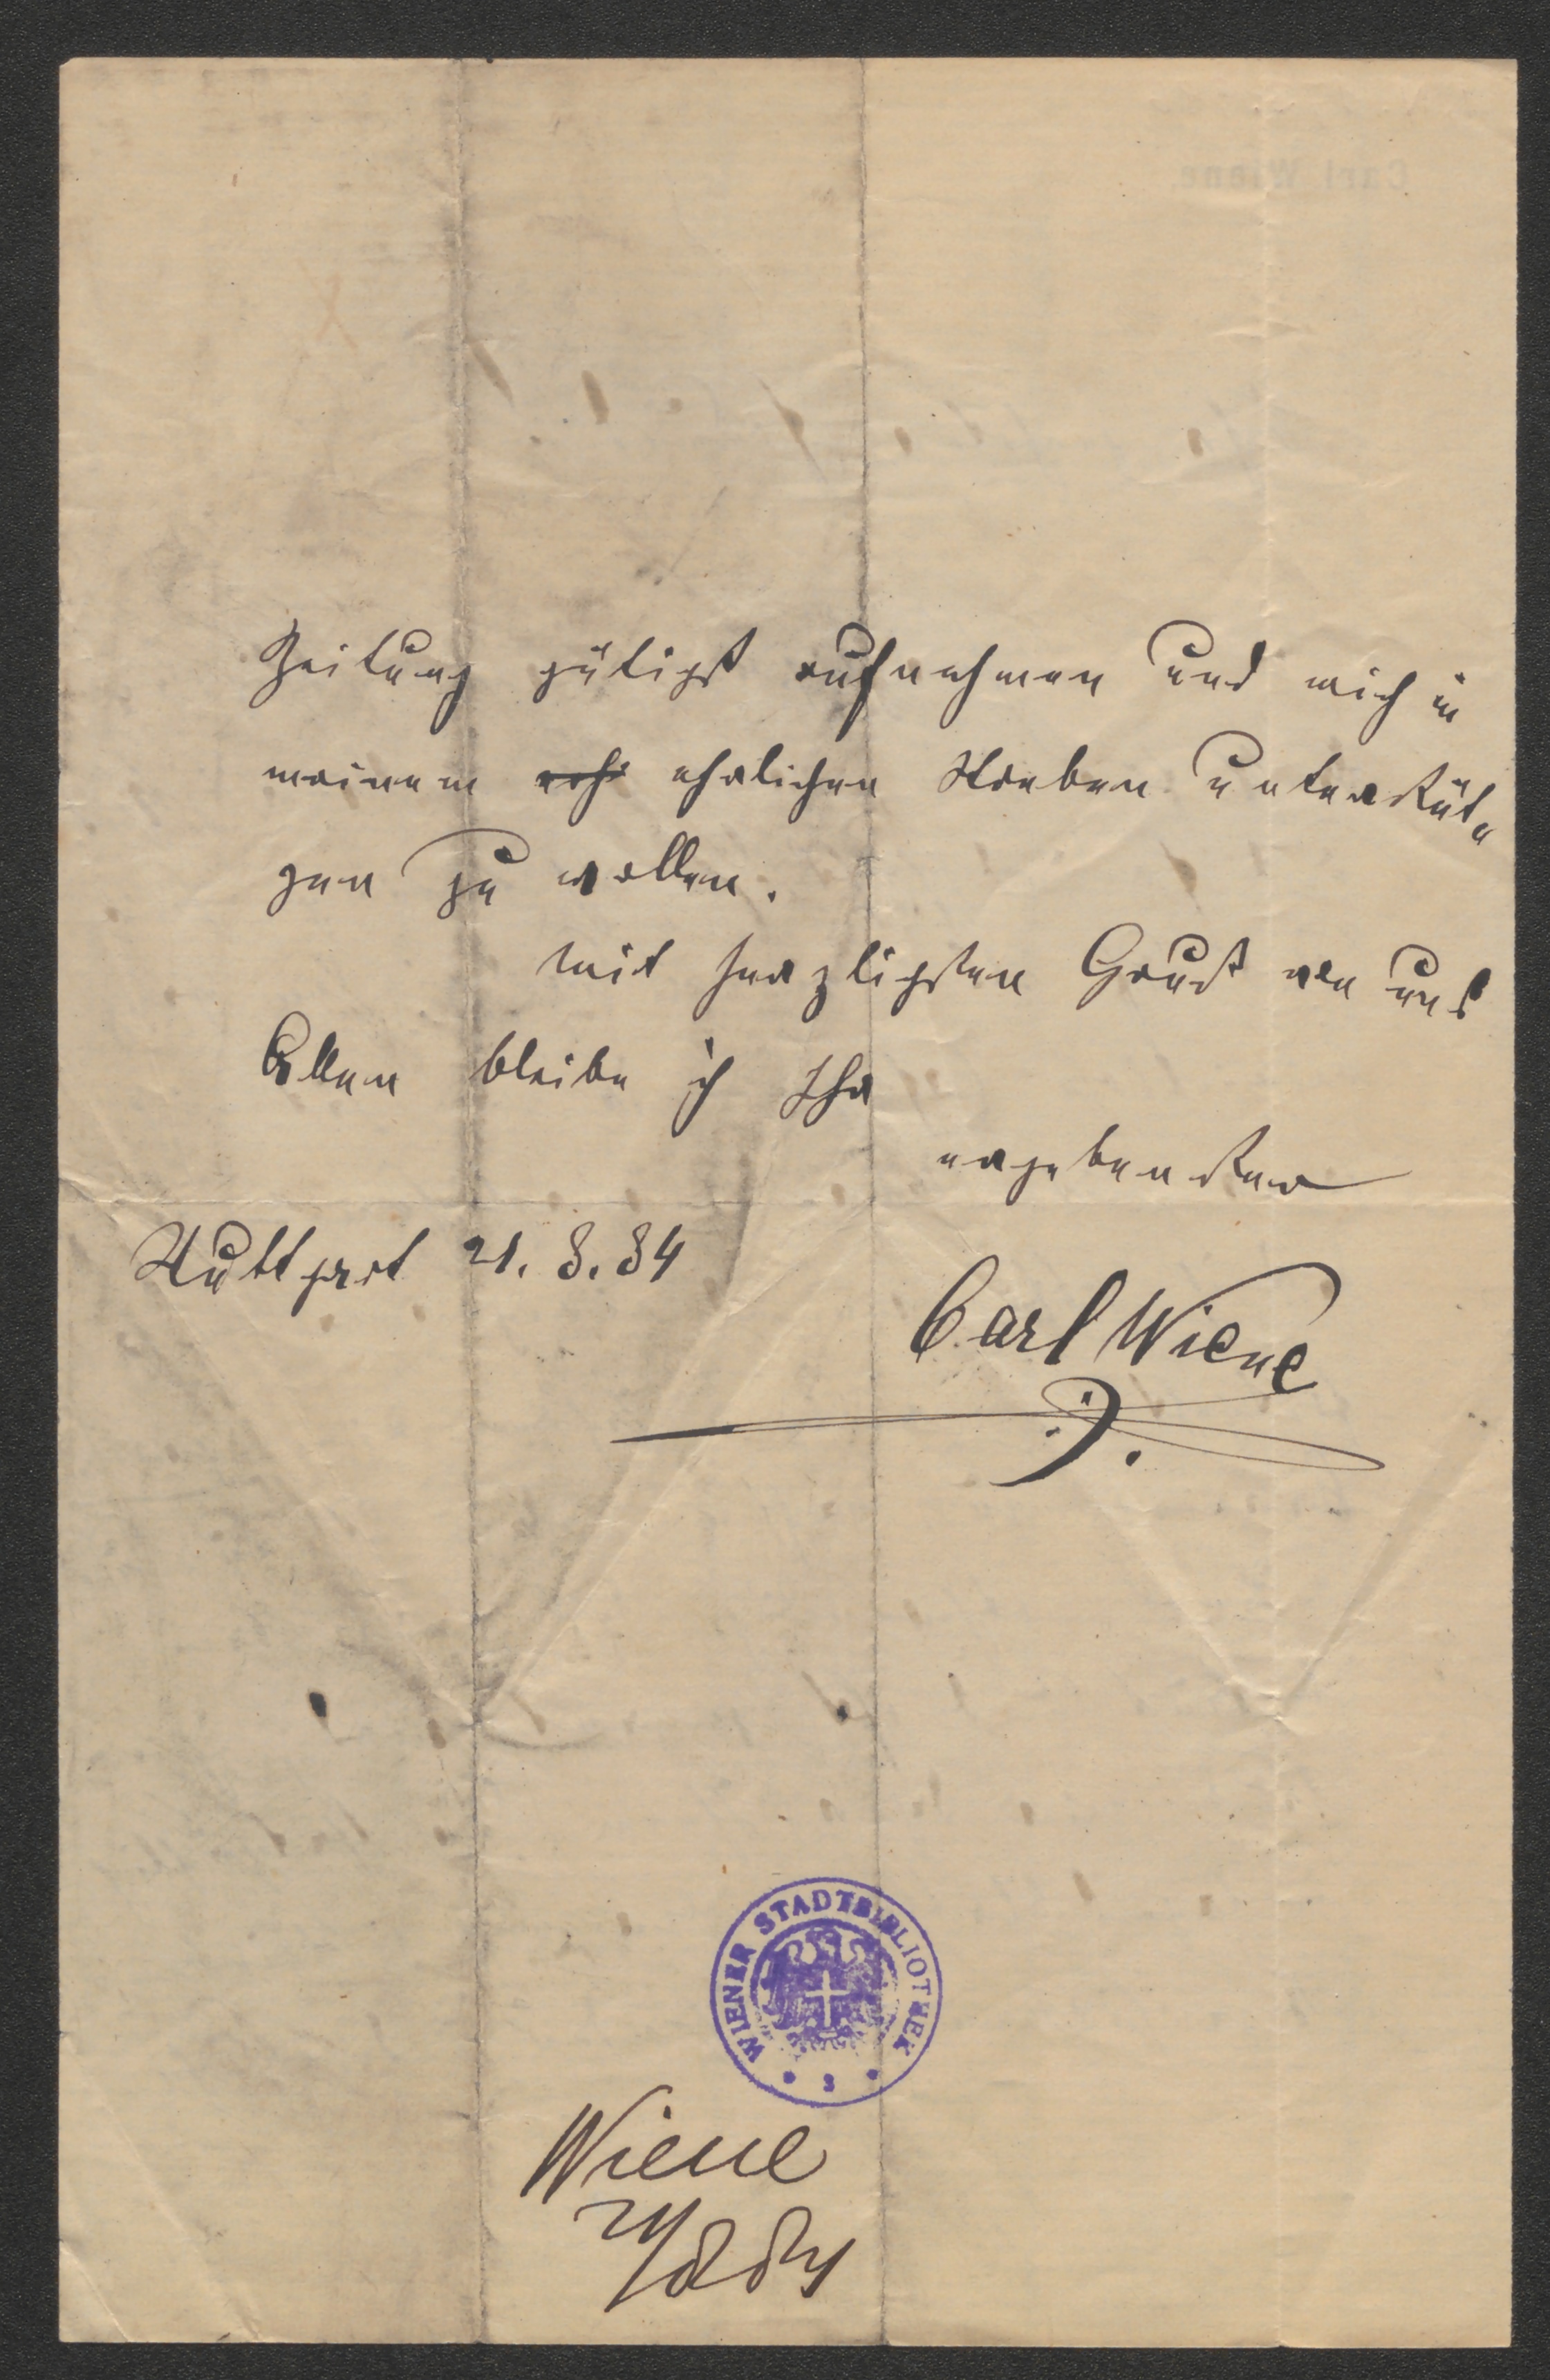 Zeitung gütigst aufnehmen und mich in
meinem ehrlichen Streben unterstüt-
zen zu wollen.
Mit herzligsten Gruß von uns
Allen bleibe ich Ihr
ergebenster
Stuttgart 21. 8. 84
Carl Wiene
WIENER STADTBIBLIOTHEK
3
Wiene
21/8 84
Carl Wiene